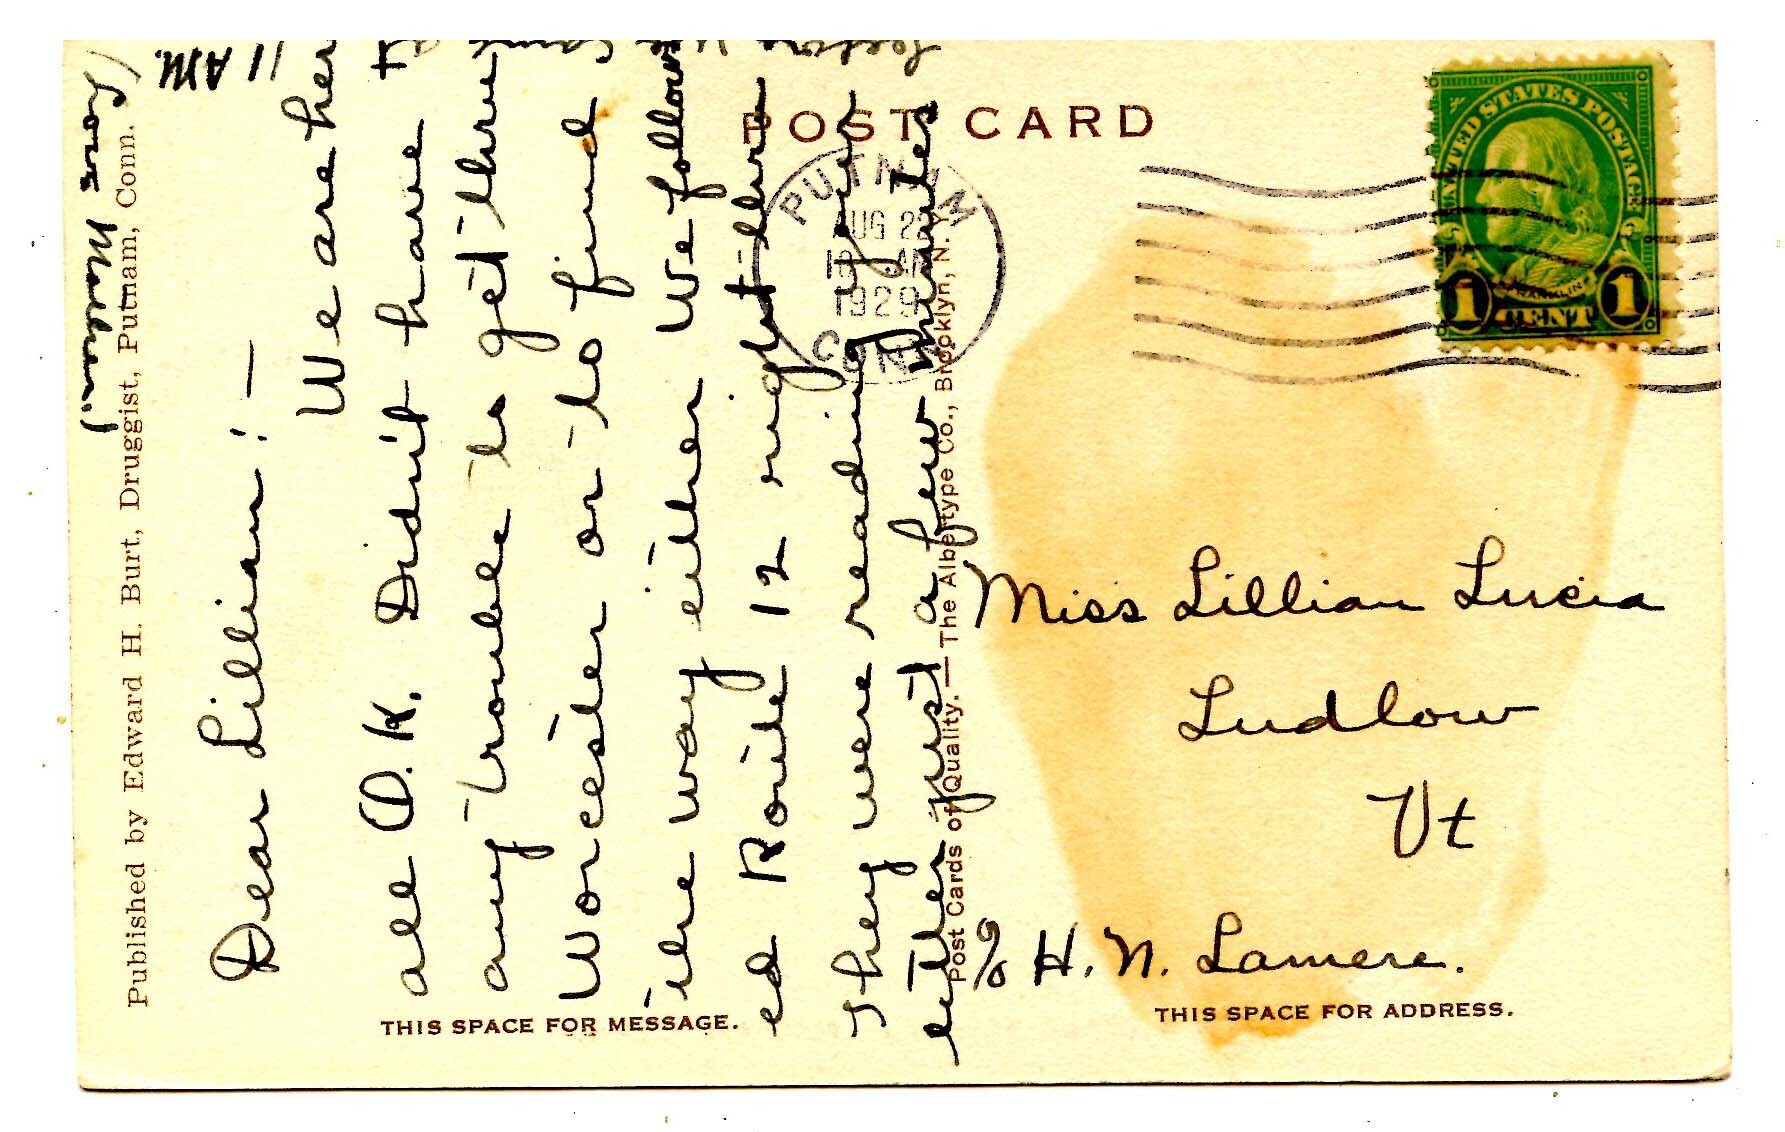 POST CARD
UNITED STATES POSTAGE
FRANKLIN
1 CENT 1
PUTNAM
AUG 22
1929
CONN
11 AM.
Dear Lillian:—
We are her
all O.K. Didn't have
any trouble to get thru
Worcester or to find
the way either We follow
ed Route 12 right thru
They were reading your
letter just a few minutes
before we came
(Love Mother.)
Miss Lillian Lucia
Ludlow
Vt
% H. N. Lamere.
Published by Edward H. Burt, Druggist, Putnam, Conn.
Post Cards of Quality. — The Albertype Co., Brooklyn, N. Y.
THIS SPACE FOR MESSAGE.
THIS SPACE FOR ADDRESS.